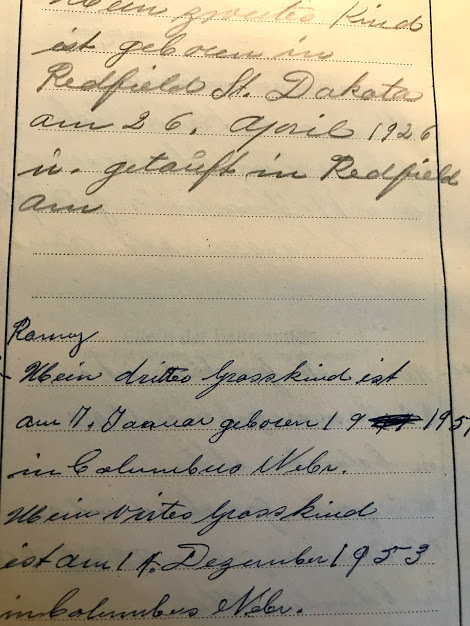 Mein zweites Kind
ist geboren in
Redfield St. Dakota
am 26. April 1926
u. getauft in Redfield
am
Ramey
Mein drittes Grosskind ist
am 7. Januar geboren 19 195
in Columbus Nebr.
Mein virtes Grosskind
ist am 1 Dezember 1953
in Columbus Nebr.